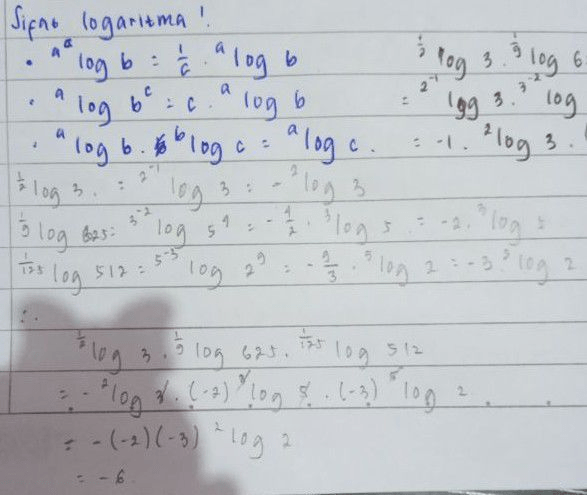 Sifat logaritma !
• ᵃᶜ log b = 1/c . ᵃlog b
• ᵃ log bᶜ = c . ᵃ log b
• ᵃlog b . ᵇlog c = ᵃlog c.
¹/² log 3 . ¹/⁹ log 6
= ²⁻¹ log 3 . ³⁻² log
= -1 . ²log 3 .
¹/² log 3 . = ²⁻¹ log 3 = - ²log 3
¹/⁹ log 625 = ³⁻² log 5⁴ = - 4/2 . ³log 5 . = -2 . ³log 5
¹/¹²⁵ log 512 = ⁵⁻³ log 2⁹ = - 9/3 . ⁵log 2 = -3 ⁵log 2
∴
¹/² log 3 . ¹/⁹ log 625 . ¹/¹²⁵ log 512
= - ²log 3 . (-2) ³log 5 . (-3) ⁵log 2
= - (-2) (-3) ²log 2
= -6